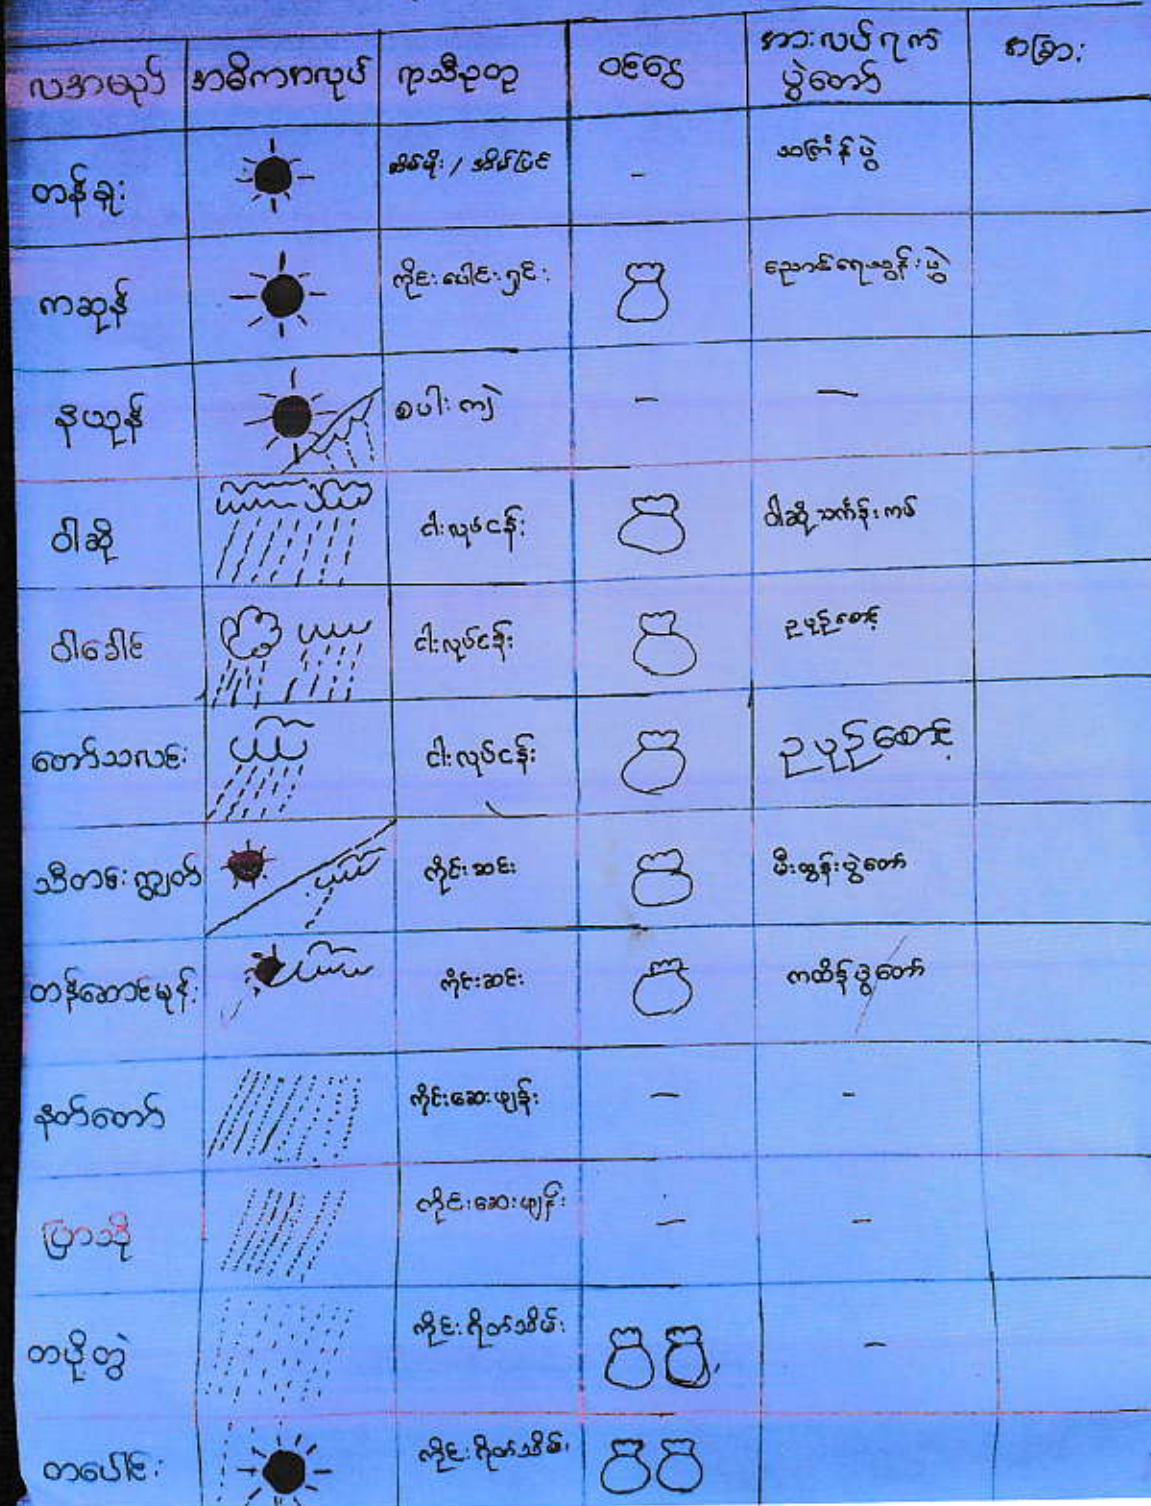 လအမည် အဓိကအလုပ် ရာသီဥတု ဝင်ငွေ အားလပ်ရက် ပွဲတော် အခြား
တန်ခူး အိမ်မိုး / အိမ်ပြင် - သင်္ကြန်ပွဲ
ကဆုန် ကိုင်းပေါင်းရှင်း ညောင်ရေသွန်းပွဲ
နယုန် စပါးကျဲ - -
ဝါဆို ငါးလုပ်ငန်း ဝါဆိုသင်္ကန်းကပ်
ဝါခေါင် ငါးလုပ်ငန်း ဥပုဉ်စောင့်
တော်သလင်း ငါးလုပ်ငန်း ဥပုဉ်စောင့်
သီတင်းကျွတ် ကိုင်းဆင်း မီးထွန်းပွဲတော်
တန်ဆောင်မုန်း ကိုင်းဆင်း ကထိန်ပွဲတော်
နတ်တော် ကိုင်းဆေးဖျန်း - -
ပြာသို ကိုင်းဆေးဖျန်း - -
တပို့တွဲ ကိုင်းရိတ်သိမ်း -
တပေါင်း ကိုင်းရိတ်သိမ်း